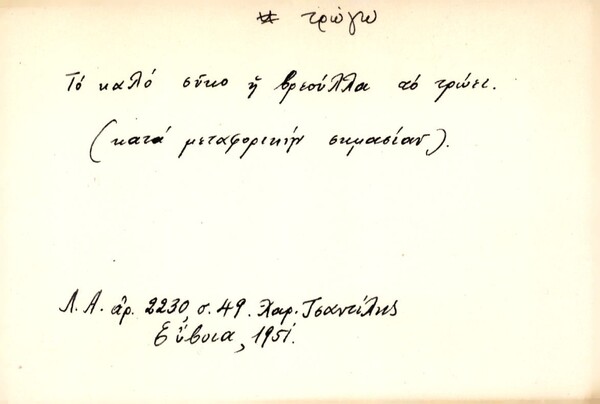 * τρώγω
Τό καλό σῦκο ἡ βρεούλλα τό τρώει.
(κατά μεταφορικήν σημασίαν).
Λ.Α. ἀρ. 2230, σ. 49. Χαρ. Τσαντίλης
Εὔβοια, 1951.